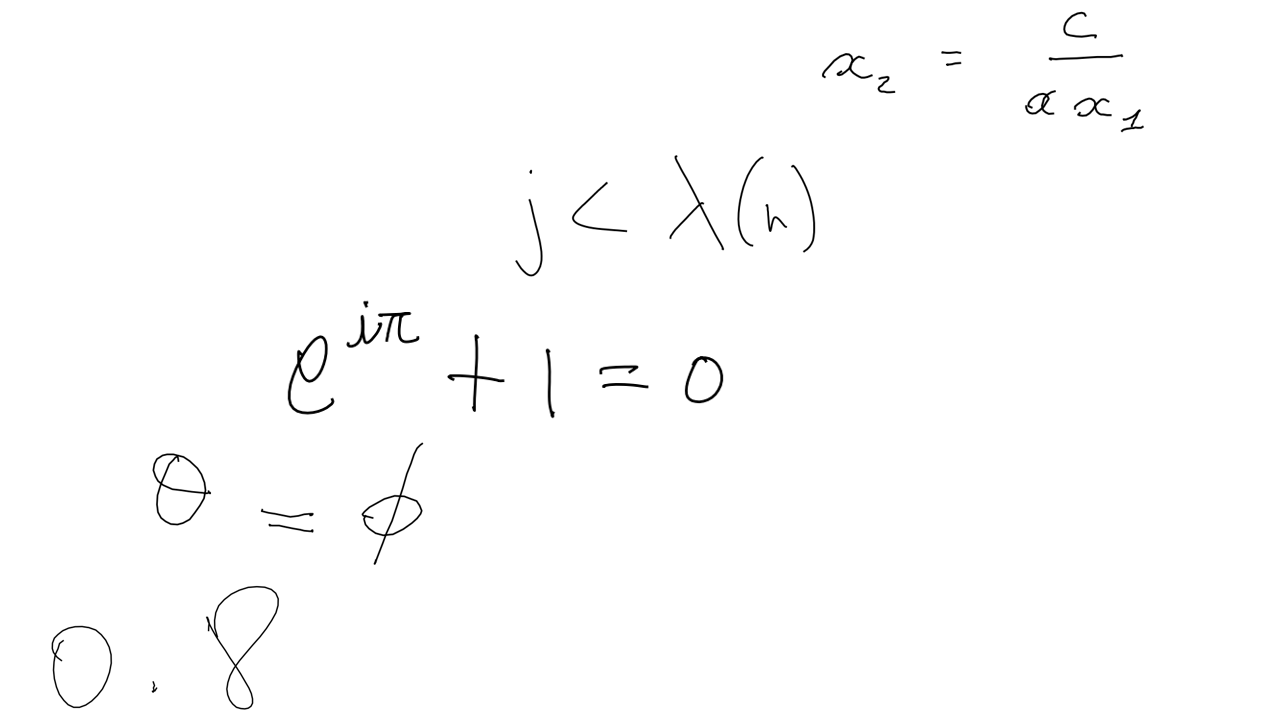 x₂ = c / (a x₁)
j < λ(n)
e^{iπ} + 1 = 0
θ = ϕ
0.8